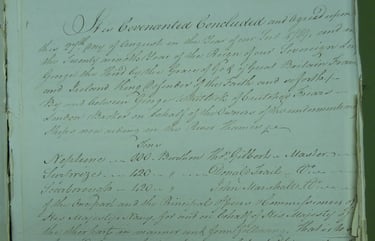 It is Covenanted Concluded and Agreed upon
this 27th Day of August in the Year of our Lord 1789, and in
the Twenty ninth Year of the Reign of our Sovereign Lord
George the Third by the Grace of God of Great Britain France
and Ireland King Defender of the Faith and so forth
By and between George Whitlock of Crutched Friars
London Broker on behalf of the Owners of the undermentioned
Ships now riding in the River Thames
Tons
Neptune 809 Burthen Thos Gilbert Master
Surprize 420 " Donald Trail Do
Scarborough 420 " John Marshall Do
of the One part and the Principal Officers & Commissioners of
His Majesty's Navy for and on behalf of His Majesty of
the other part in manner and form following That is to